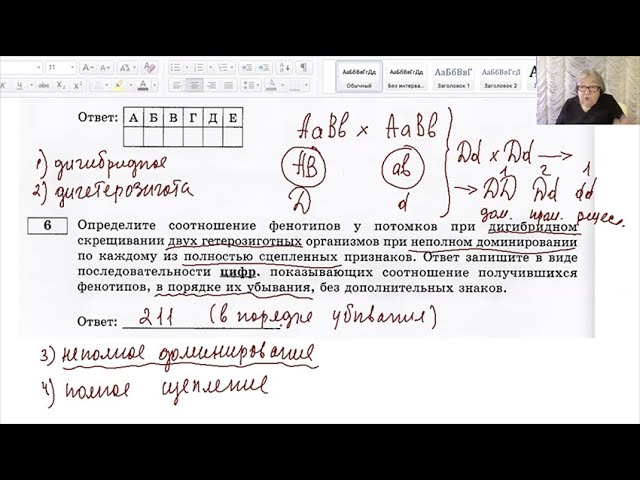 11
АаБбВгГгДд
АаБбВвГгДд
АаБбВвГ
АаБбВвГг
Обычный
Без интерва...
Заголовок 1
Заголовок 2
Ответ:
А Б В Г Д Е
AaBb × AaBb
1) дигибридное
2) дигетерозигота
AB ab
D d
Dd × Dd →
1 2 1
→ DD Dd dd
дом. пром. рецес.
6
Определите соотношение фенотипов у потомков при дигибридном
скрещивании двух гетерозиготных организмов при неполном доминировании
по каждому из полностью сцепленных признаков. Ответ запишите в виде
последовательности цифр, показывающих соотношение получившихся
фенотипов, в порядке их убывания, без дополнительных знаков.
Ответ: 211 (в порядке убывания)
3) неполное доминирование
4) полное сцепление